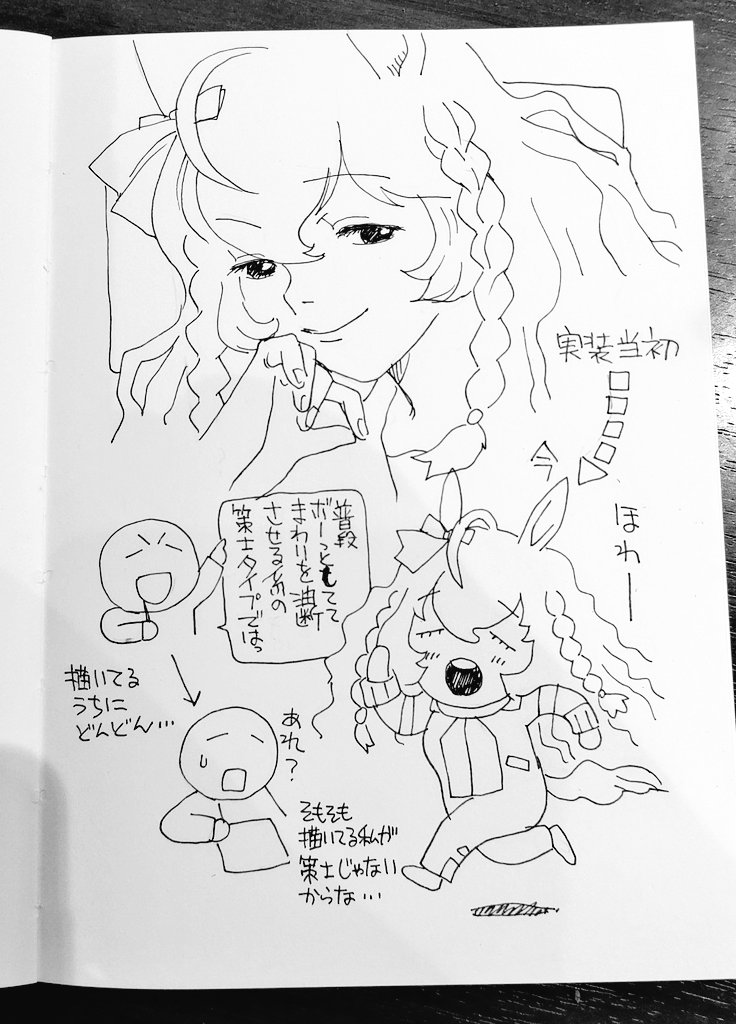 実装当初
今
ほわー
普段
ボーっとしてて
まわりを油断
させる系の
策士タイプではっ
描いてる
うちに
どんどん…
あれ？
そもそも
描いてる私が
策士じゃない
からな…